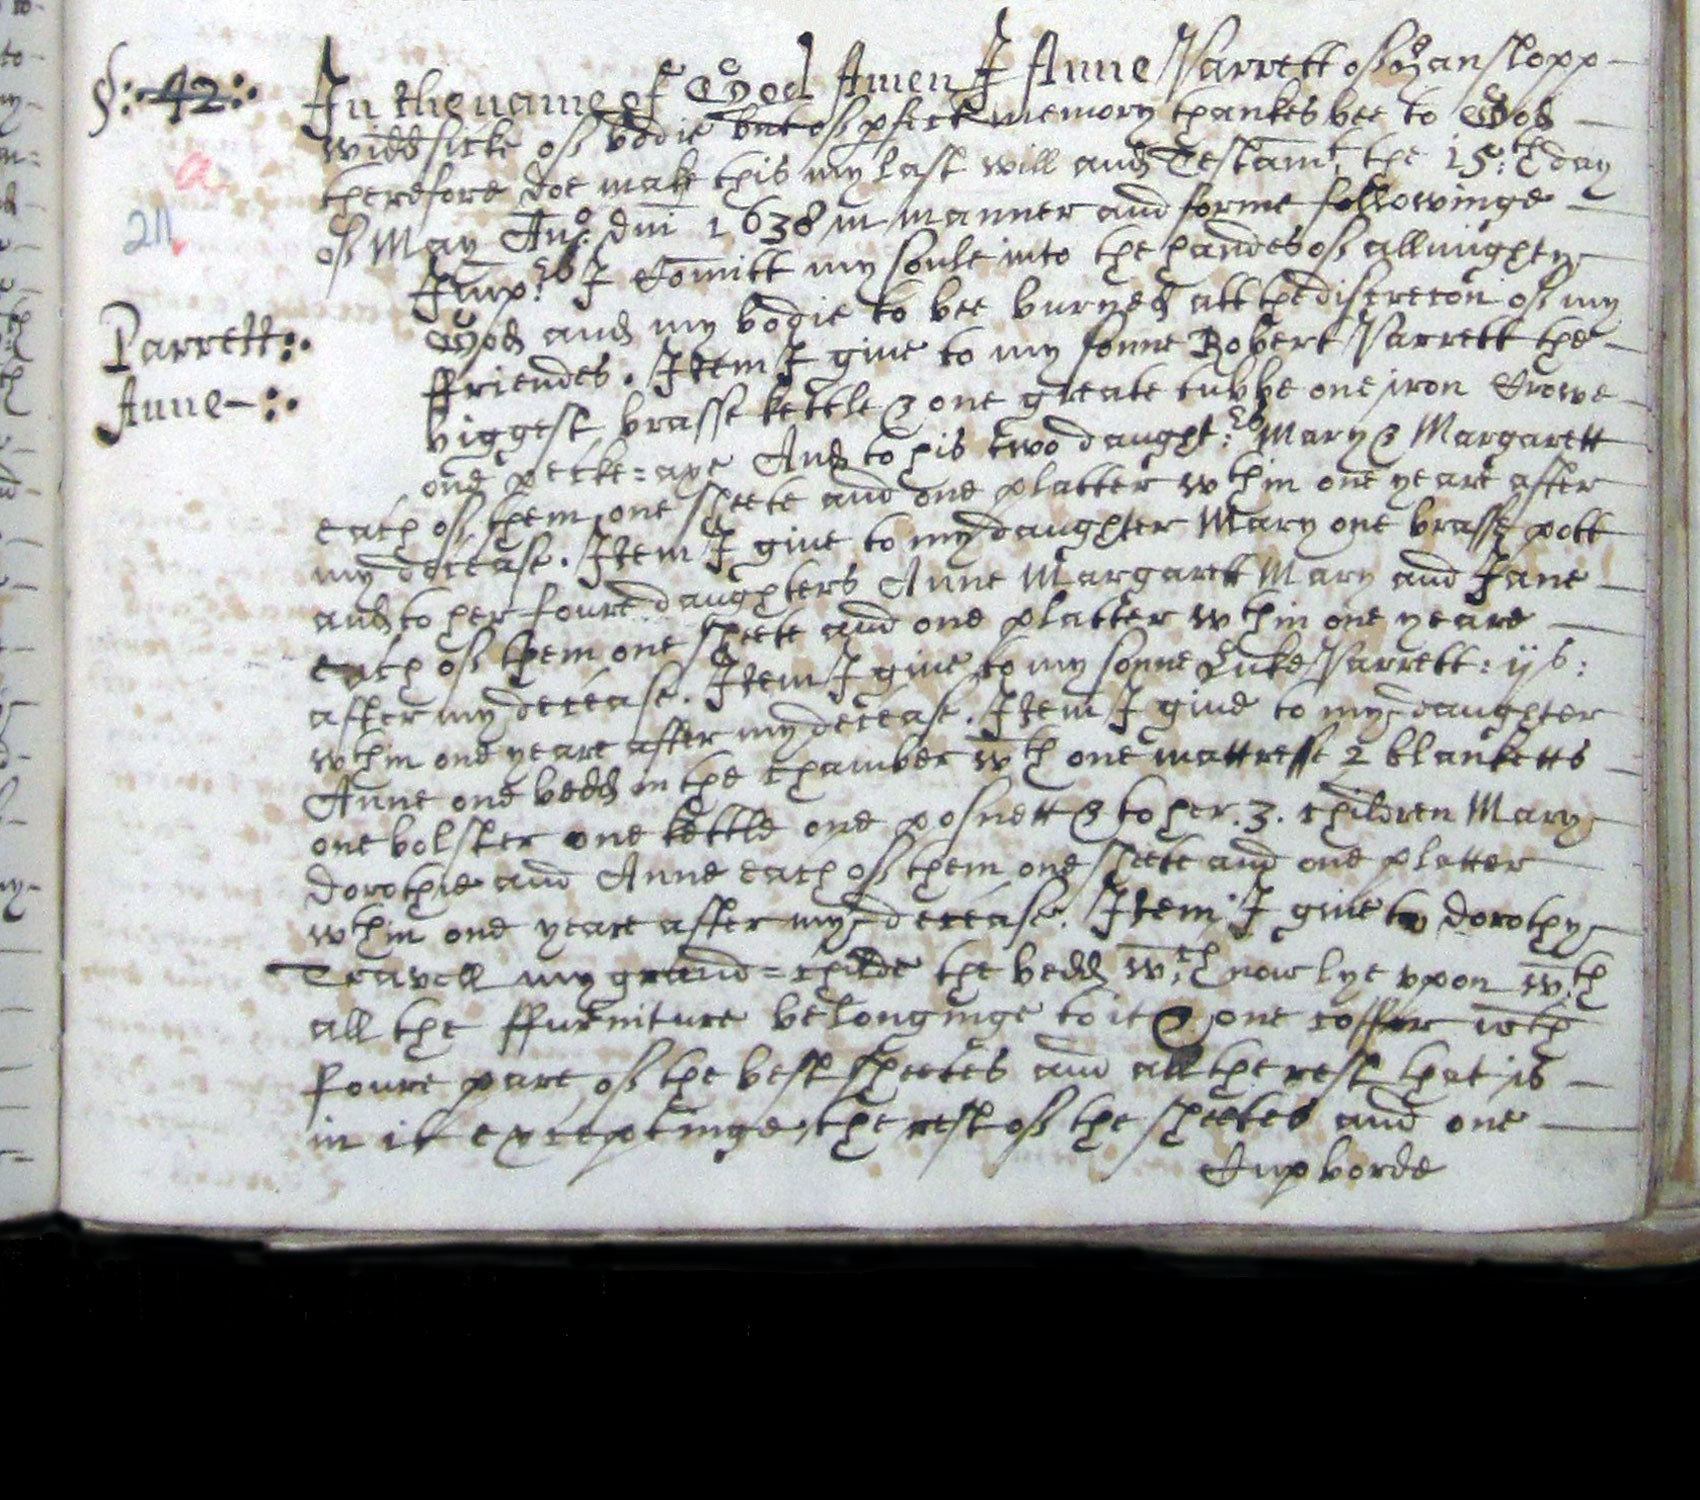 §: 42:
In the name of God Amen I Anne Parrett of Hanslopp
widd sicke of bodie but of pfect memory thankes bee to God
therefore doe make this my last will and Testamt the 15:th day
of May Ano: dni 1638 in manner and forme followinge
Imp:rs I Comitt my soule into the handes of allmighty
God and my bodie to bee buryed att the discrecon of my
ffriendes. Item I give to my sonne Robert Parrett the
Parrett:
Anne-:
biggest brasse kettle & one greate tubbe one iron Crowe
one pecke=axe And to his two daught:rs Mary & Margarett
each of them one sheete and one platter wthin one yeare after
my decease. Item I give to my daughter Mary one brasse pott
and to her foure daughters Anne Margarett Mary and Jane
each of them one sheete and one platter wthin one yeare
after my decease. Item I give to my sonne Luke Parrett: ijs:
wthin one yeare after my decease. Item I give to my daughter
Anne one bedd in the chamber wth one mattresse 2 blanketts
one bolster one kettle one posnett & to her .3. children Mary
dorothie and Anne each of them one sheete and one platter
wthin one yeare after my decease. Item I give to dorothy
Travell my grand=childe the bedd w:ch now lye vpon w:th
all the ffurniture belonginge to it & one coffer wth
foure pare of the best sheetes and all the rest that is
in it exceptinge the rest of the sheetes and one
Cupborde